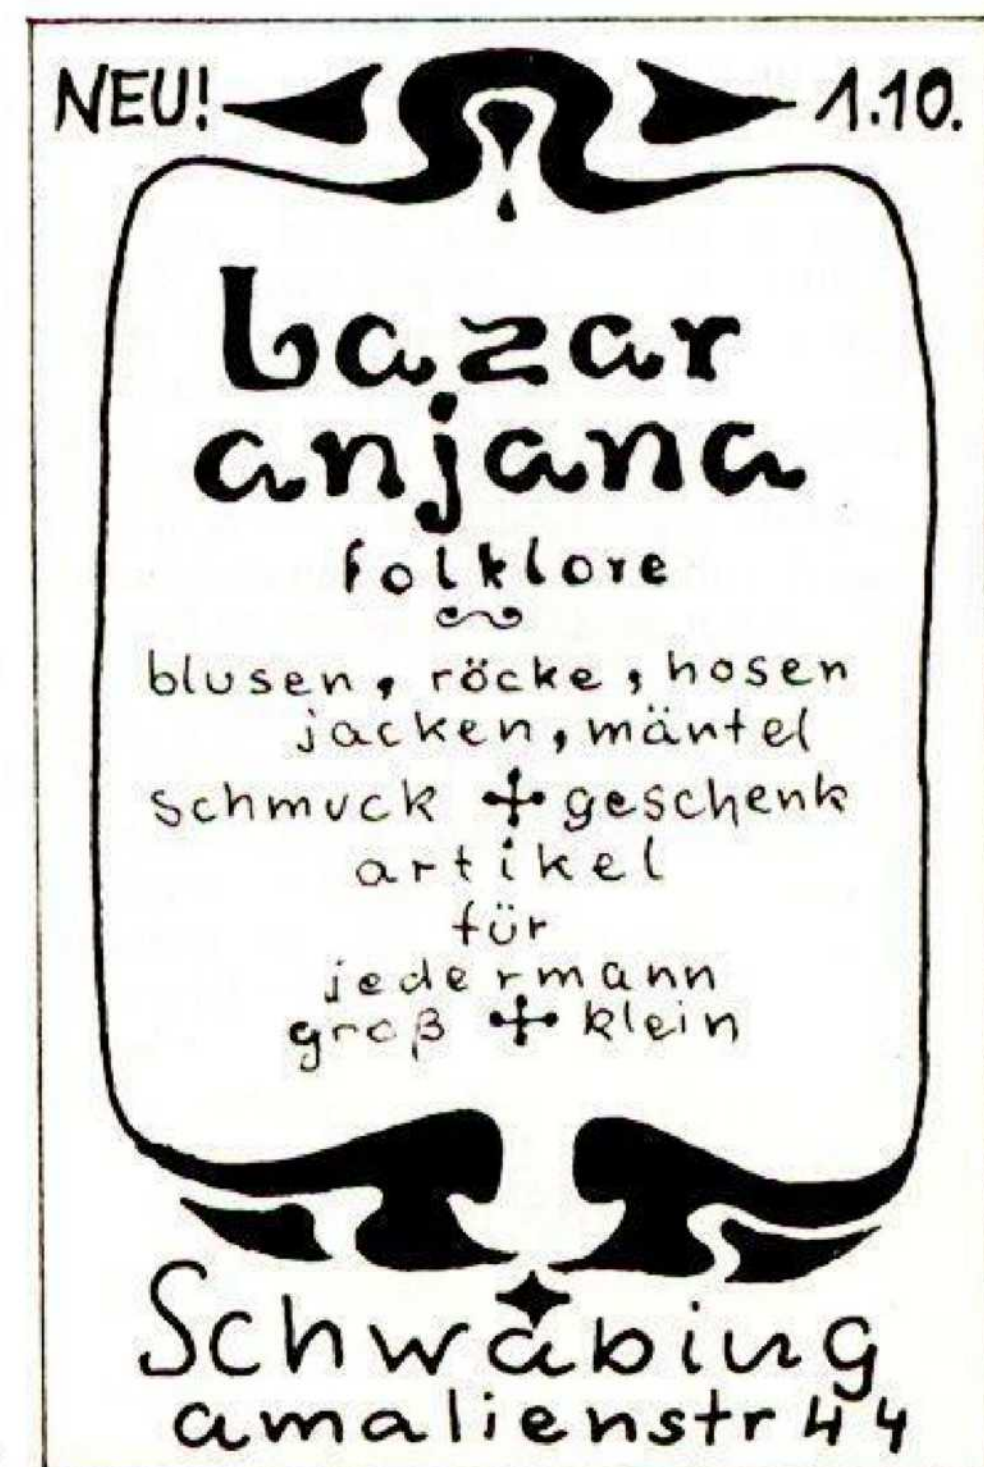 NEU! 1.10.
bazar
anjana
folklore
blusen, röcke, hosen
jacken, mäntel
schmuck + geschenk
artikel
für
jedermann
groß + klein
Schwabing
amalienstr 44